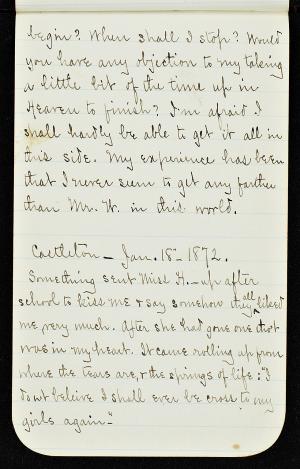 begin? When shall I stop? Would
you have any objection to my taking
a little bit of the time up in
Heaven to finish? I'm afraid I
shall hardly be able to get it all in
this side. My experience has been
that I never seem to get any farther
than Mr. W. in this world.
Castleton – Jan. 18th 1872.
Something sent Miss H. – up after
school to kiss me & say somehow they all liked
me very much. After she had gone one thot
was in my heart. It came rolling up from
where the tears are, & the springs of life: "I
don't believe I shall ever be cross to my
girls again."